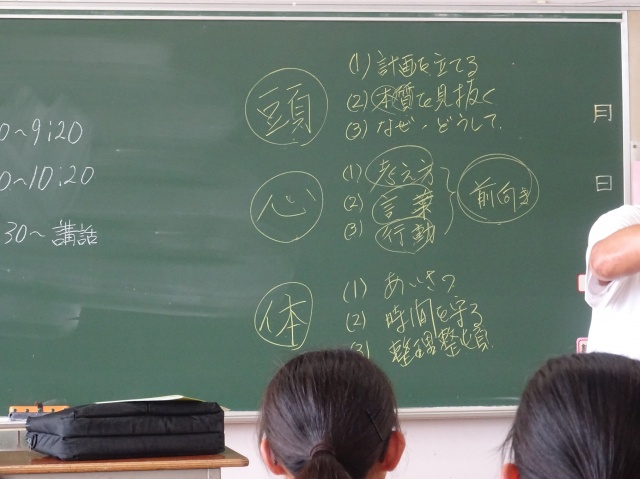 0~9:20
0~10:20
30~ 講話
頭
(1) 計画を立てる
(2) 本質を見抜く
(3) なぜ、どうして
心
(1) 考え方
(2) 言葉
(3) 行動
前向き
体
(1) あいさつ
(2) 時間を守る
(3) 整理整頓
月
日